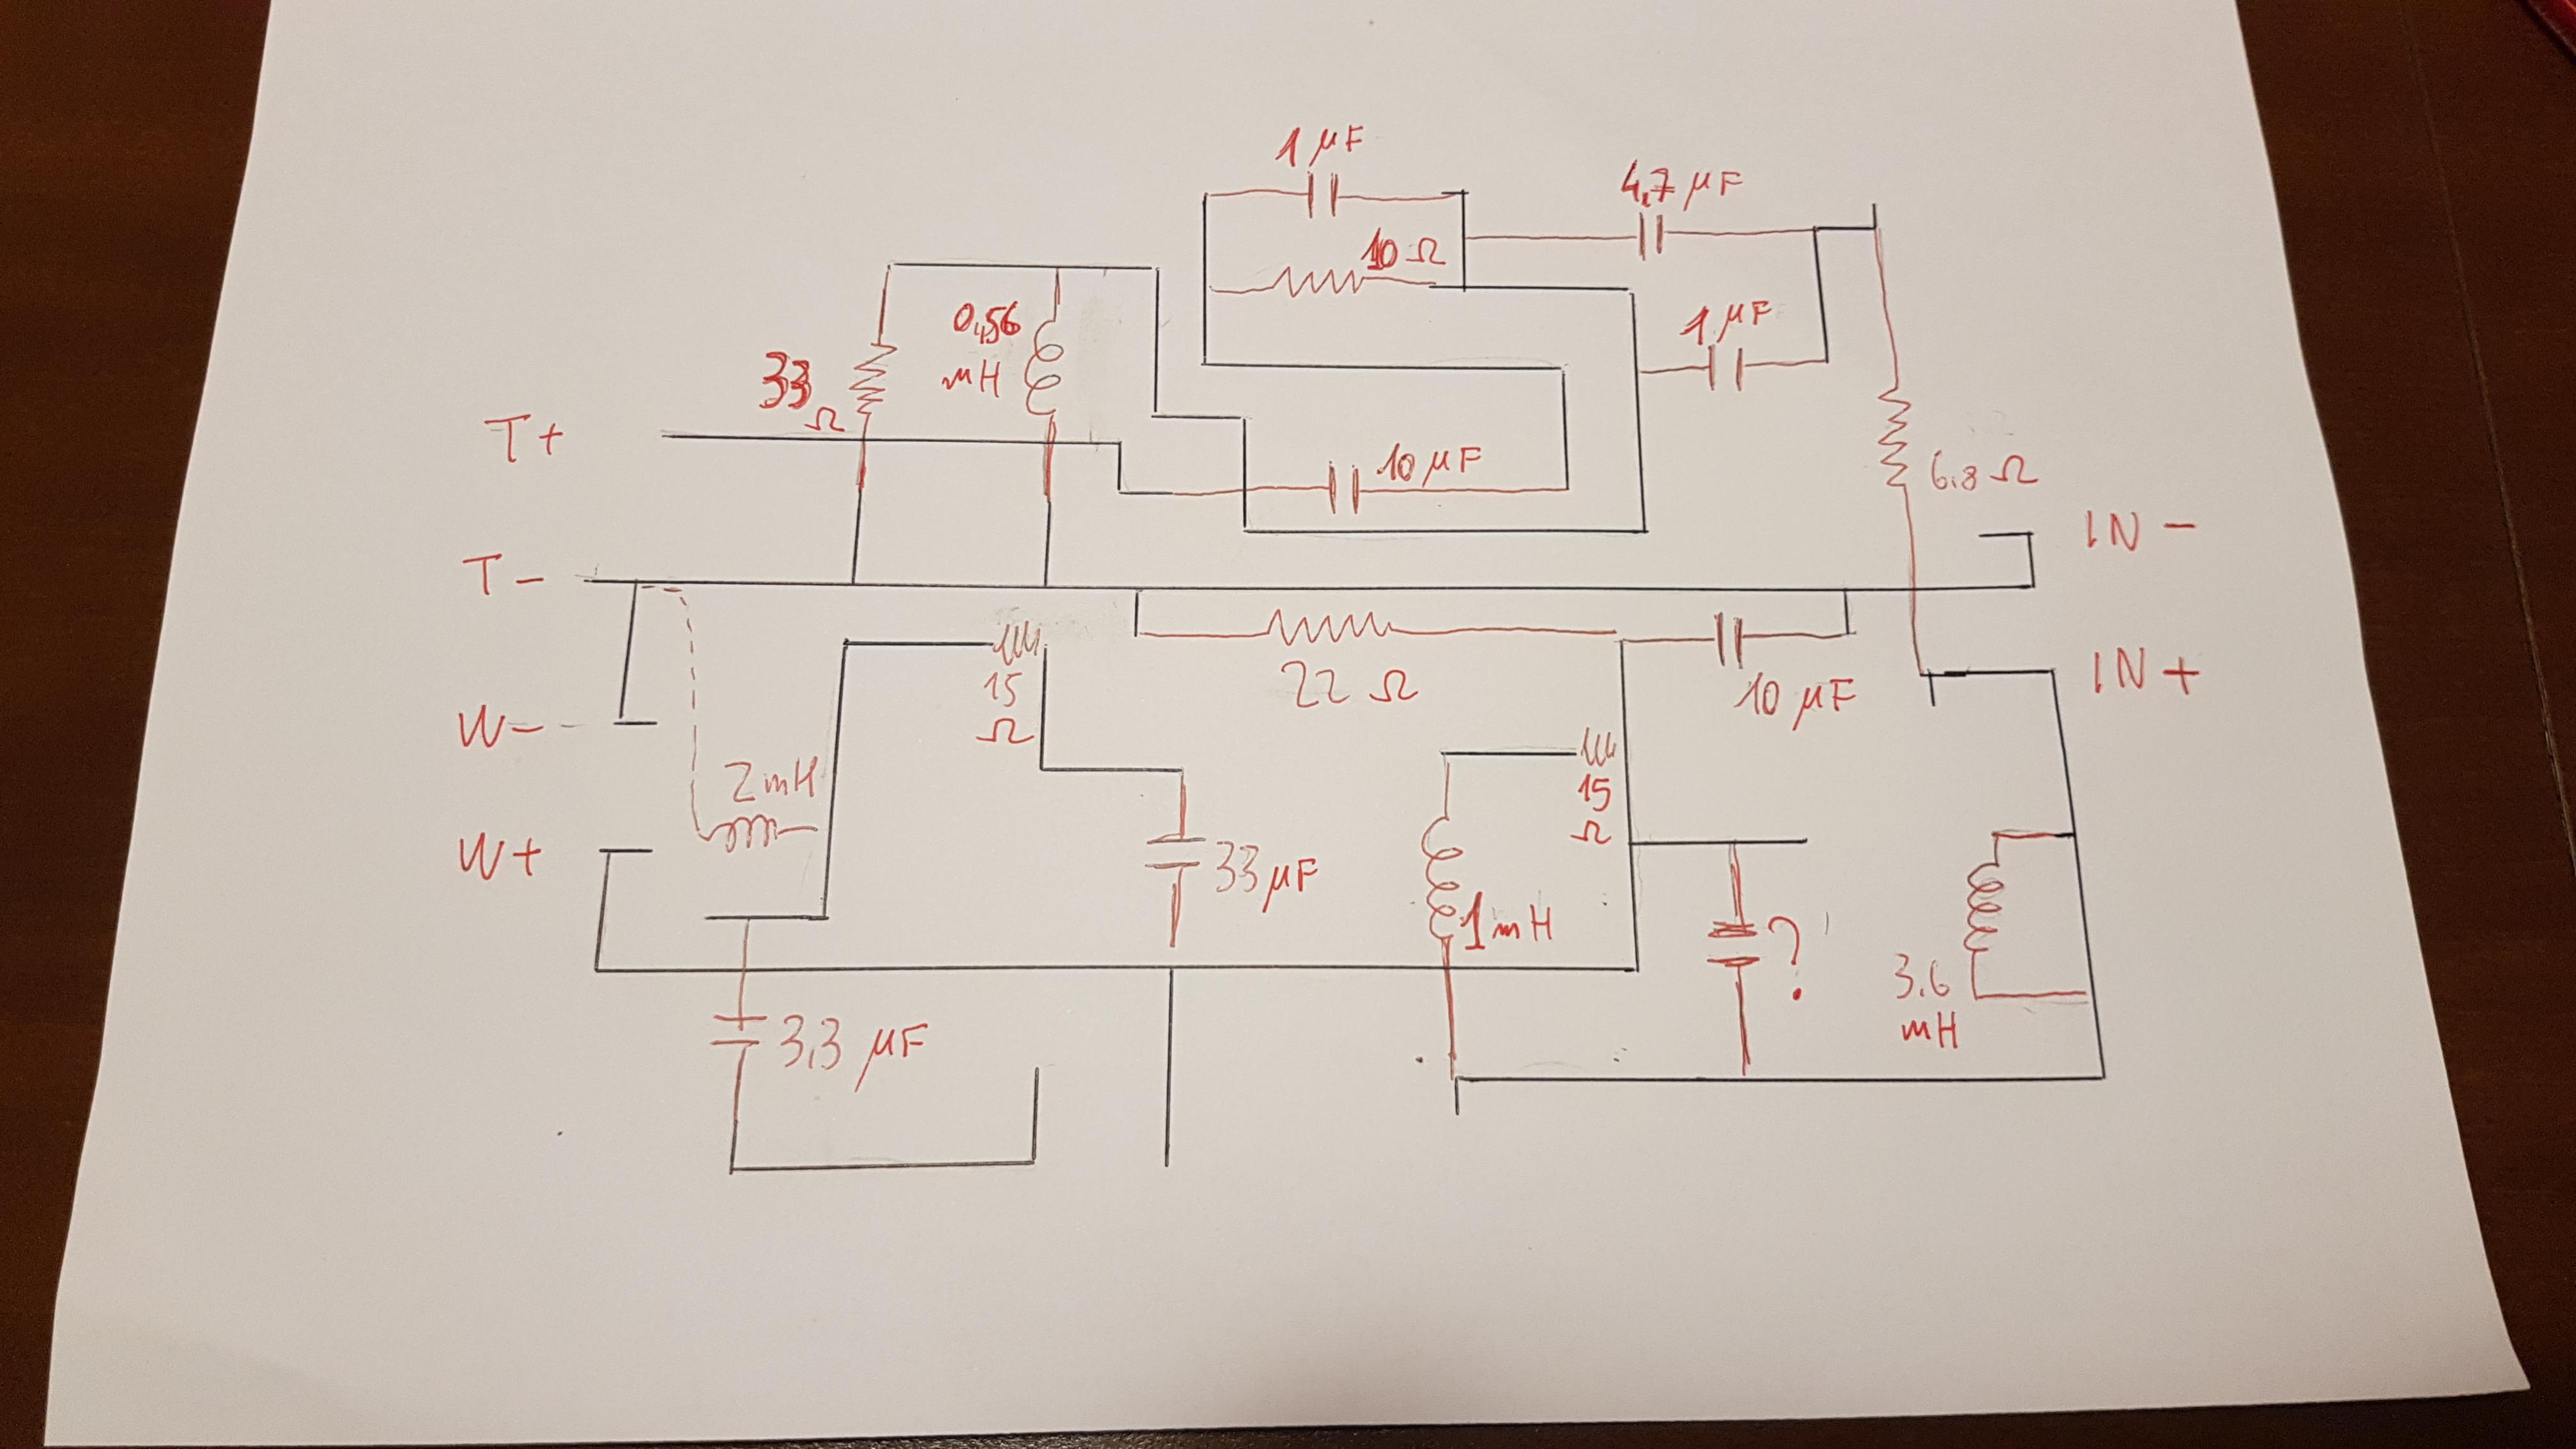 1 µF
4,7 µF
10 Ω
0,56
mH
1 µF
33
Ω
T+
10 µF
6.8 Ω
IN -
T-
IN +
15
Ω
22 Ω
10 µF
W-
2mH
15
Ω
W+
33 µF
1mH
?
3.6
mH
3,3 µF